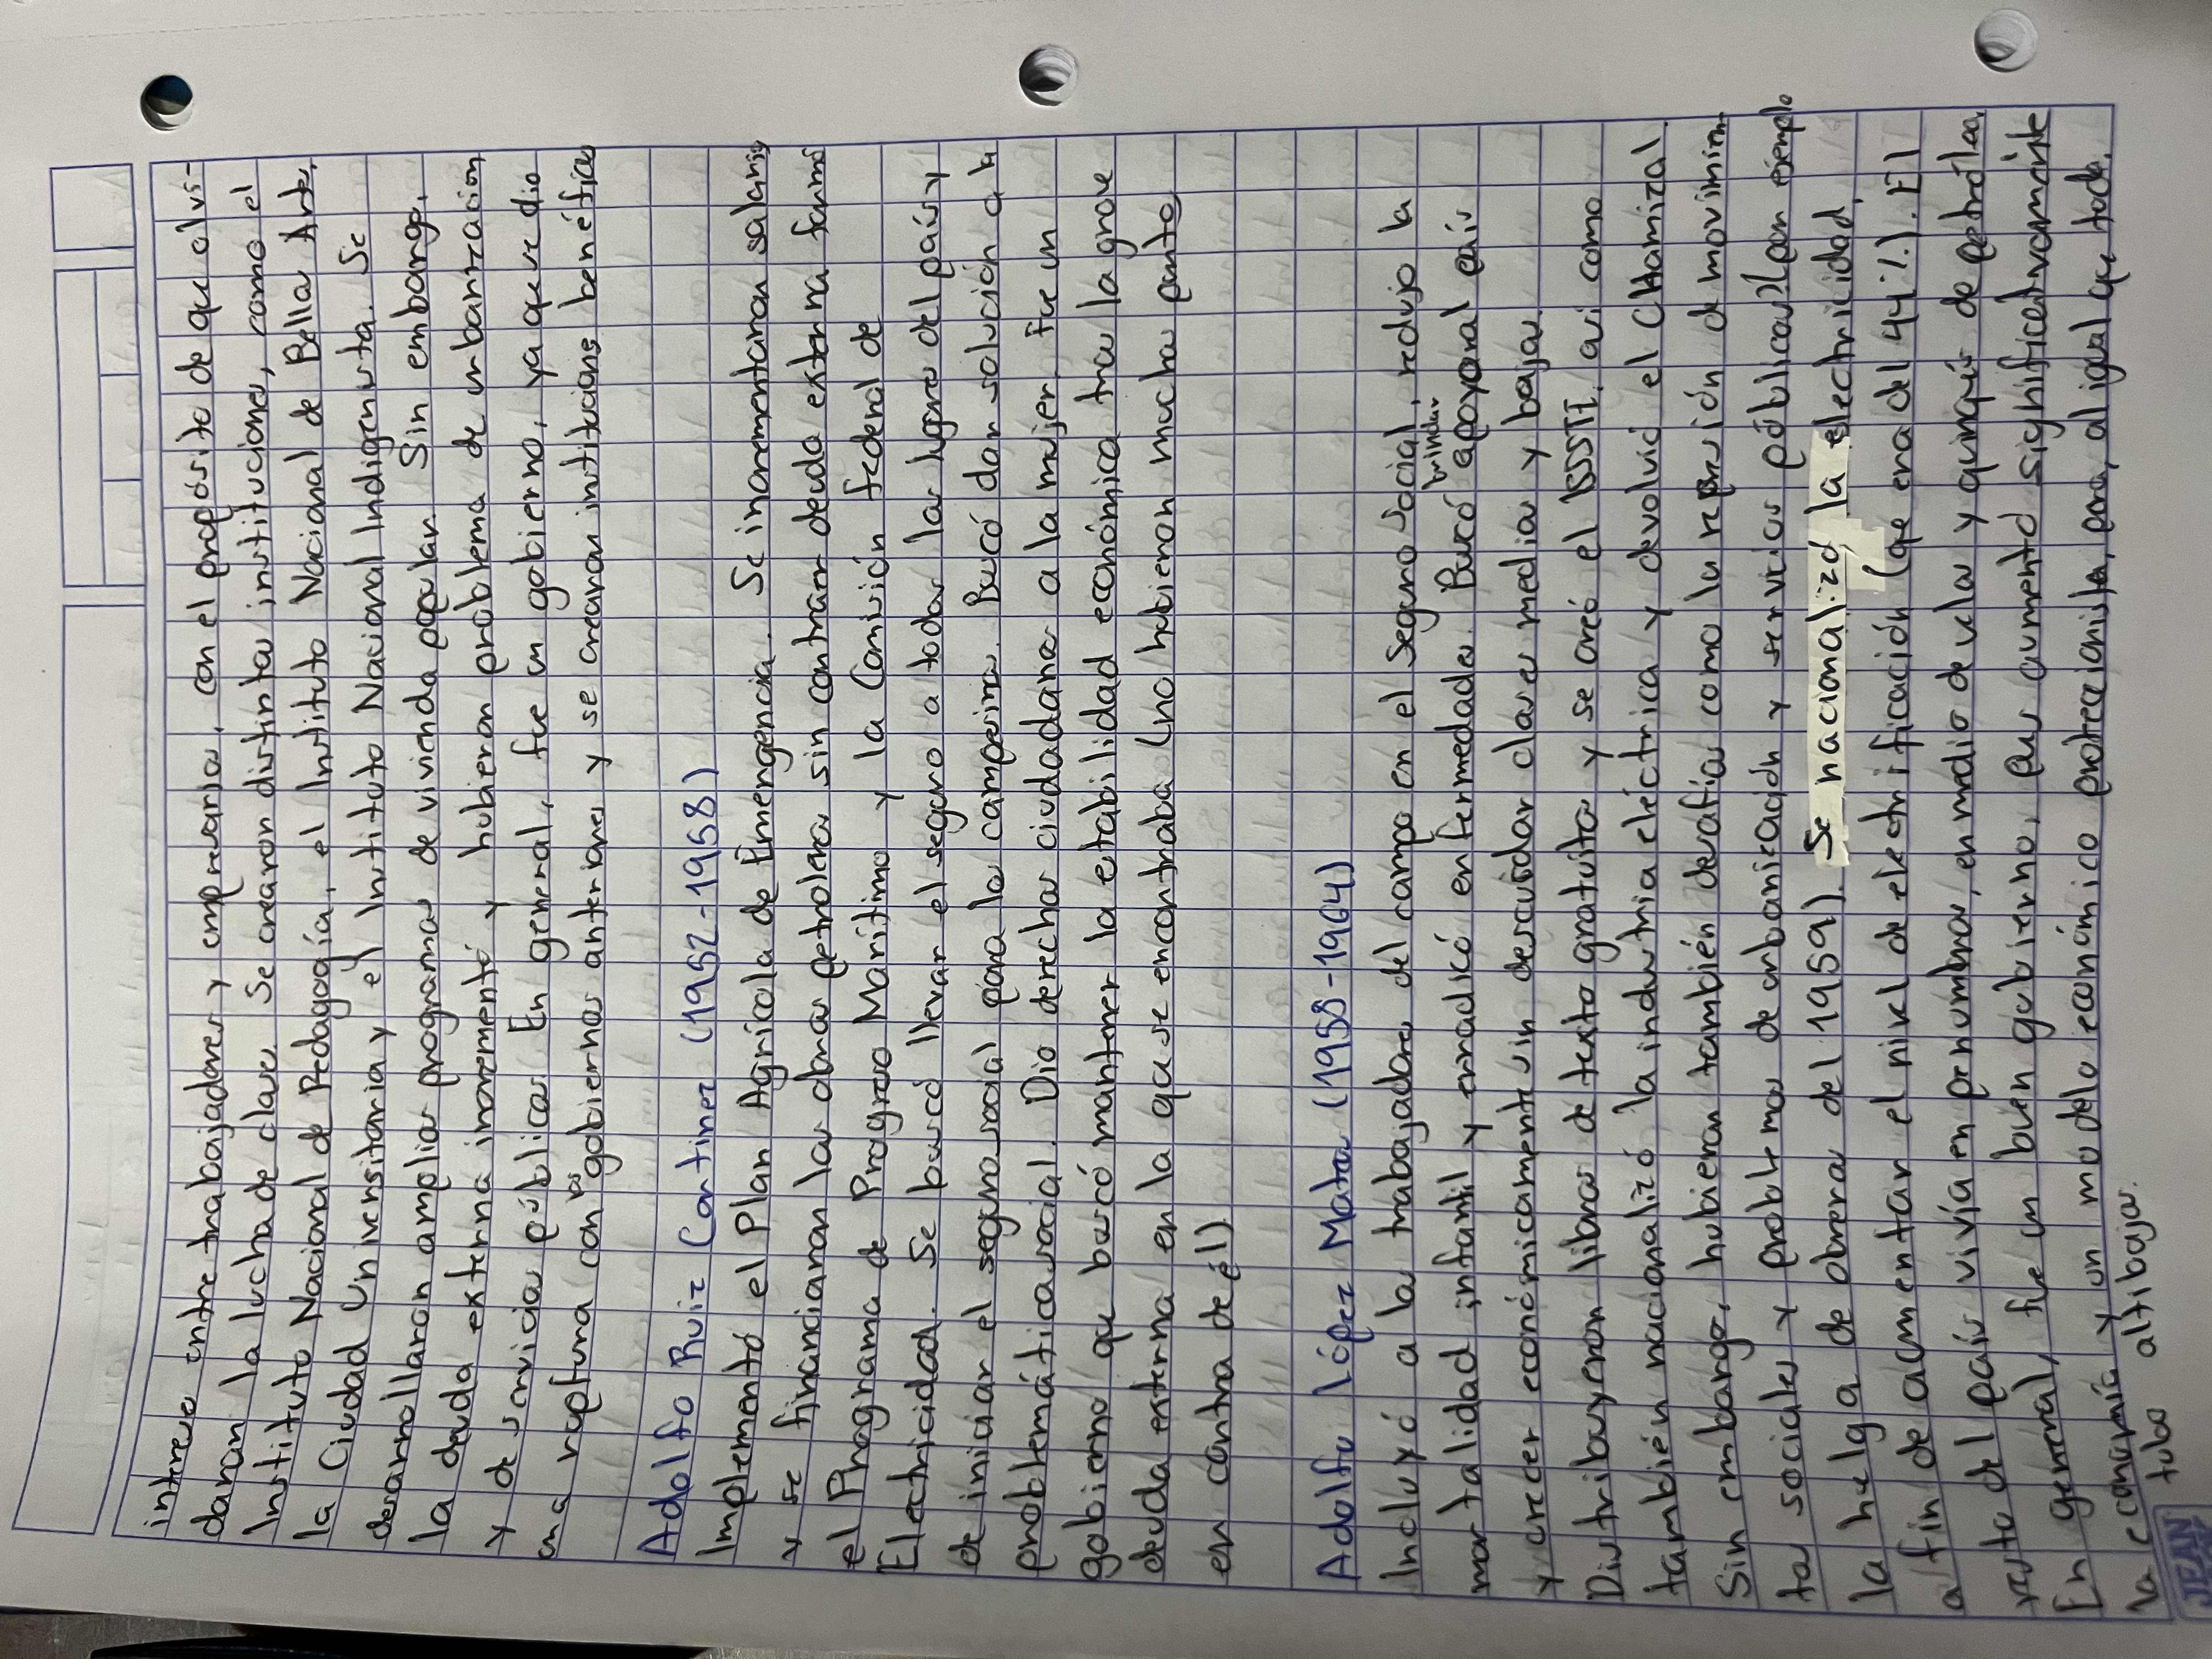 intereses entre trabajadores y empresarios, con el propósito de que olvi-
daran la lucha de clases. Se crearon distintas instituciones, como el
Instituto Nacional de Pedagogía, el Instituto Nacional de Bellas Artes,
la Ciudad Universitaria y el Instituto Nacional Indigenista. Se
desarrollaron amplios programas de vivienda popular. Sin embargo,
la deuda externa incrementó y hubieron problemas de urbanización
y de servicios públicos. En general, fue un gobierno, ya que se dio
una ruptura con los gobiernos anteriores y se crearon instituciones benéficas
Adolfo Ruiz Cortines (1952-1958)
Implementó el Plan Agrícola de Emergencia. Se incrementaron salarios
y se financiaron las obras petroleras sin contraer deuda externa formó
el Programa de Progreso Marítimo y la Comisión federal de
Electricidad. Se buscó llevar el seguro a todos las lugares del país y
de iniciar el seguro social para los campesinos. Buscó dar solución a la
problemática social. Dio derechos ciudadanos a la mujer. Fue un
gobierno que buscó mantener la estabilidad económica tras la grave
deuda externa en la que se encontraba (no hubieron muchos puntos
en contra de él)
Adolfo López Mateos (1958-1964)
Incluyó a los trabajadores del campo en el seguro social, redujo la
mortalidad infantil y erradicó enfermedades. Buscó brindar apoyo al país
y crecer económicamente sin descuidar clases medias y bajas.
Distribuyeron libros de texto gratuitos y se creó el ISSSTE, así como
también nacionalizó la industria eléctrica y devolvió el CHamizal.
Sin embargo, hubieron también desafíos como la represión de movimien-
tos sociales y problemas de urbanización y servicios públicos (por ejemplo
la huelga de obreros del 1959). Se nacionalizó la electricidad,
a fin de acumentar el nivel de electrificación (que era del 44%). El
resto del país vivía en penumbras, en medio de velas y quinqués de petróleo.
En general, fue un buen gobierno, pues aumentó significativamente
la economía y un modelo económico proteccionista, pero, al igual que todo,
tubo altibajos.
JEAN